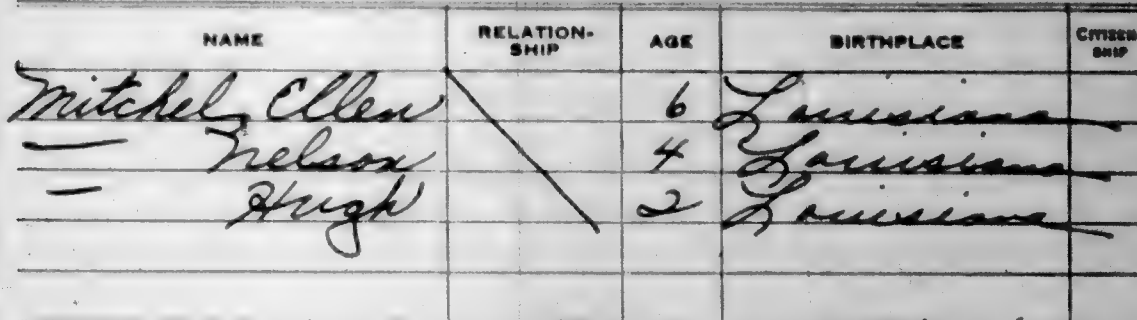 NAME RELATION-SHIP AGE BIRTHPLACE CITIZEN SHIP
Mitchel, Ellen 6 Louisiana
— Nelson 4 Louisiana
— Hugh 2 Louisiana